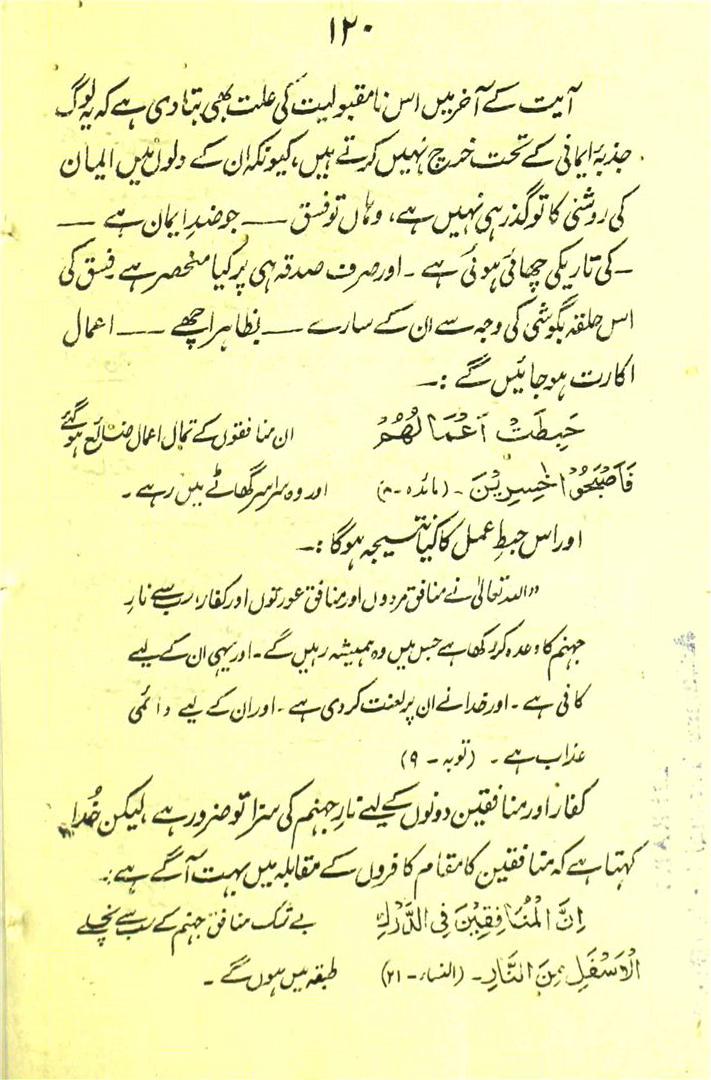 ۱۲۰
آیت کے آخر میں اس نامقبولیت کی علت بھی بتا دی ہے کہ یہ لوگ
جذبۂ ایمانی کے تحت خرچ نہیں کرتے ہیں، کیونکہ ان کے دلوں میں ایمان
کی روشنی کا تو گذر ہی نہیں ہے، وہاں تو فسق —— جو ضدِ ایمان ہے ——
— کی تاریکی چھائی ہوئی ہے ۔ اور صرف صدقہ ہی پر کیا منحصر ہے فسق کی
اس حلقہ بگوشی کی وجہ سے ان کے سارے —— بظاہر اچھے —— اعمال
اکارت ہو جائیں گے :—
حَبِطَتْ اَعْمَالُهُمْ ان منافقوں کے تمام اعمال ضائع ہو گئے
فَاَصْبَحُوْا خٰسِرِيْنَ ۔ (مائدہ - ۸) اور وہ سراسر گھاٹے میں رہے ۔
اور اس حبطِ عمل کا کیا نتیجہ ہوگا :—
"اللہ تعالیٰ نے منافق مردوں اور منافق عورتوں اور کفار، سب سے نارِ
جہنم کا وعدہ کر رکھا ہے جس میں وہ ہمیشہ رہیں گے ۔ اور یہی ان کے لیے
کافی ہے ۔ اور خدا نے ان پر لعنت کر دی ہے ۔ اور ان کے لیے دائمی
عذاب ہے ۔ (توبہ - ۹)
کفار اور منافقین دونوں کے لیے نارِ جہنم کی سزا تو ضرور ہے لیکن خُدا
کہتا ہے کہ منافقین کا مقام کافروں کے مقابلہ میں بہت آگے ہے :
اِنَّ الْمُنَافِقِيْنَ فِی الدَّرْكِ بے شک منافق جہنم کے سب سے نچلے
الْاَسْفَلِ مِنَ النَّارِ ۔ (النساء - ۲۱) طبقہ میں ہوں گے ۔